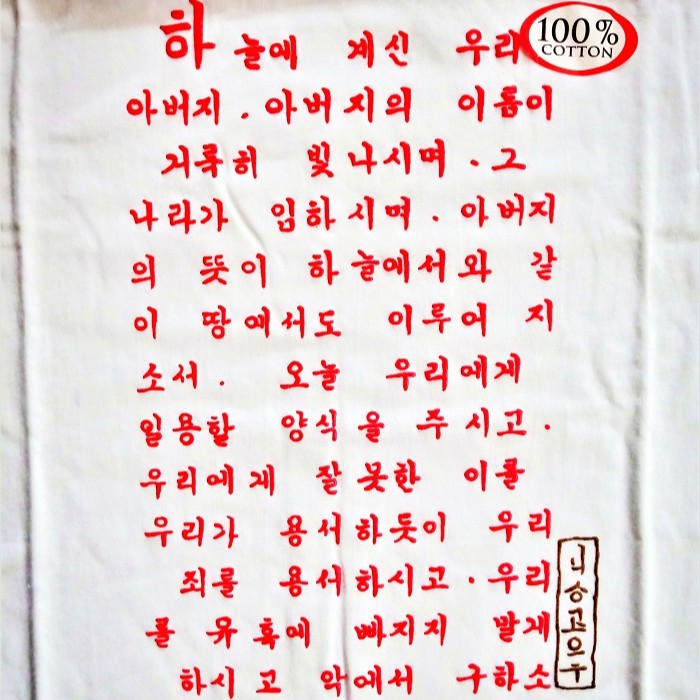 하늘에 계신 우리
100%
COTTON
아버지. 아버지의 이름이
거룩히 빛나시며. 그
나라가 임하시며. 아버지
의 뜻이 하늘에서와 같
이 땅에서도 이루어 지
소서. 오늘 우리에게
일용할 양식을 주시고.
우리에게 잘못한 이를
우리가 용서하듯이 우리
죄를 용서하시고. 우리
를 유혹에 빠지지 말게
하시고 악에서 구하소